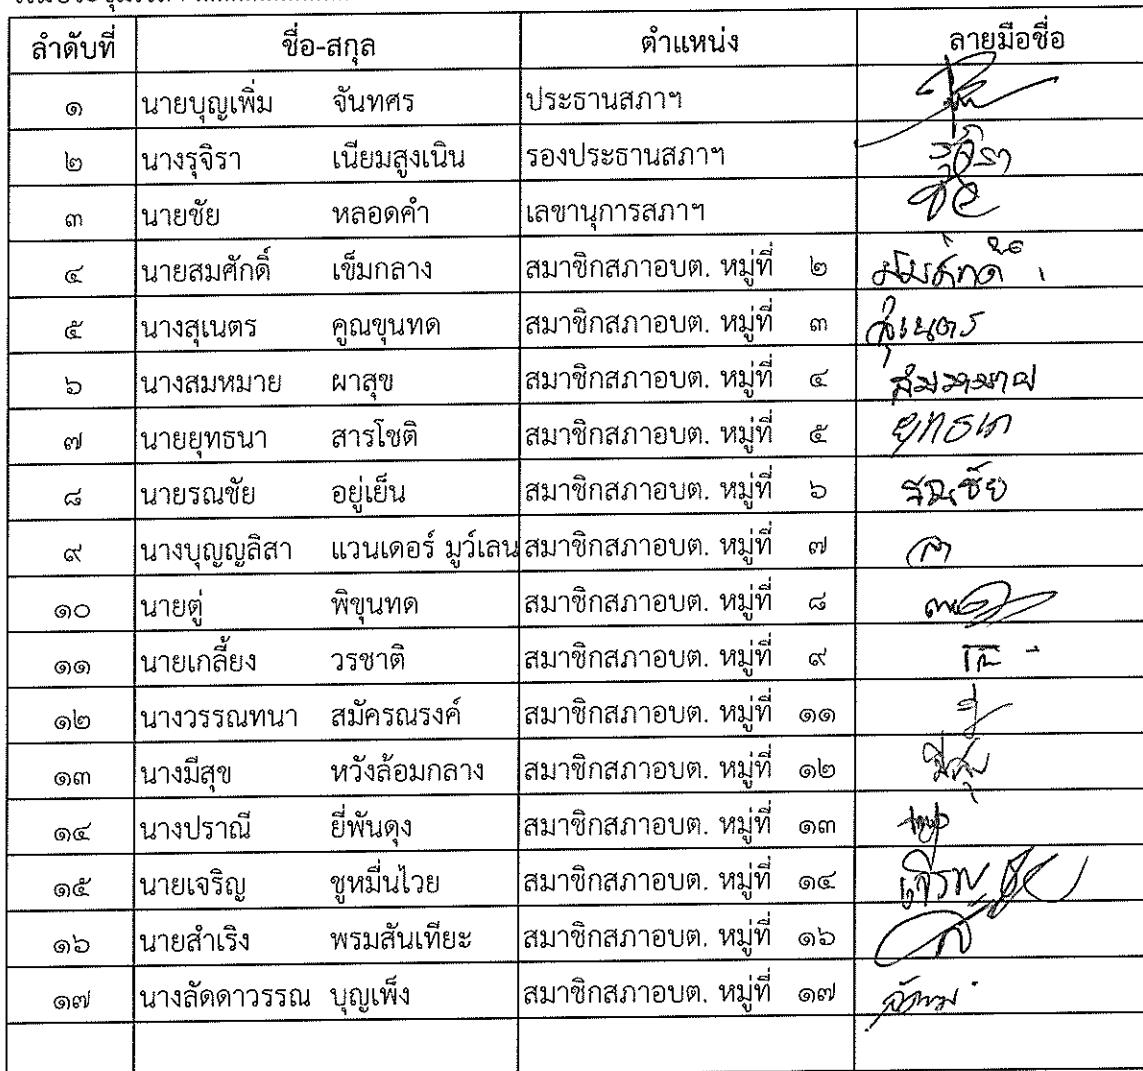 ลำดับที่ ชื่อ-สกุล ตำแหน่ง ลายมือชื่อ
๑ นายบุญเพิ่ม จันทศร ประธานสภาฯ
๒ นางรุจิรา เนียมสูงเนิน รองประธานสภาฯ รุจิรา
๓ นายชัย หลอดคำ เลขานุการสภาฯ
๔ นายสมศักดิ์ เข็มกลาง สมาชิกสภาอบต. หมู่ที่ ๒ สมศักดิ์
๕ นางสุเนตร คูณขุนทด สมาชิกสภาอบต. หมู่ที่ ๓ สุเนตร
๖ นางสมหมาย ผาสุข สมาชิกสภาอบต. หมู่ที่ ๔ สมหมาย
๗ นายยุทธนา สารโชติ สมาชิกสภาอบต. หมู่ที่ ๕
๘ นายรณชัย อยู่เย็น สมาชิกสภาอบต. หมู่ที่ ๖ รณชัย
๙ นางบุญญลิสา แวนเดอร์ มูว์เลน สมาชิกสภาอบต. หมู่ที่ ๗
๑๐ นายตู่ พิขุนทด สมาชิกสภาอบต. หมู่ที่ ๘
๑๑ นายเกลี้ยง วรชาติ สมาชิกสภาอบต. หมู่ที่ ๙
๑๒ นางวรรณทนา สมัครณรงค์ สมาชิกสภาอบต. หมู่ที่ ๑๑
๑๓ นางมีสุข หวังล้อมกลาง สมาชิกสภาอบต. หมู่ที่ ๑๒ มีสุข
๑๔ นางปราณี ยี่พันดุง สมาชิกสภาอบต. หมู่ที่ ๑๓
๑๕ นายเจริญ ชูหมื่นไวย สมาชิกสภาอบต. หมู่ที่ ๑๔
๑๖ นายสำเริง พรมสันเทียะ สมาชิกสภาอบต. หมู่ที่ ๑๖
๑๗ นางลัดดาวรรณ บุญเพ็ง สมาชิกสภาอบต. หมู่ที่ ๑๗